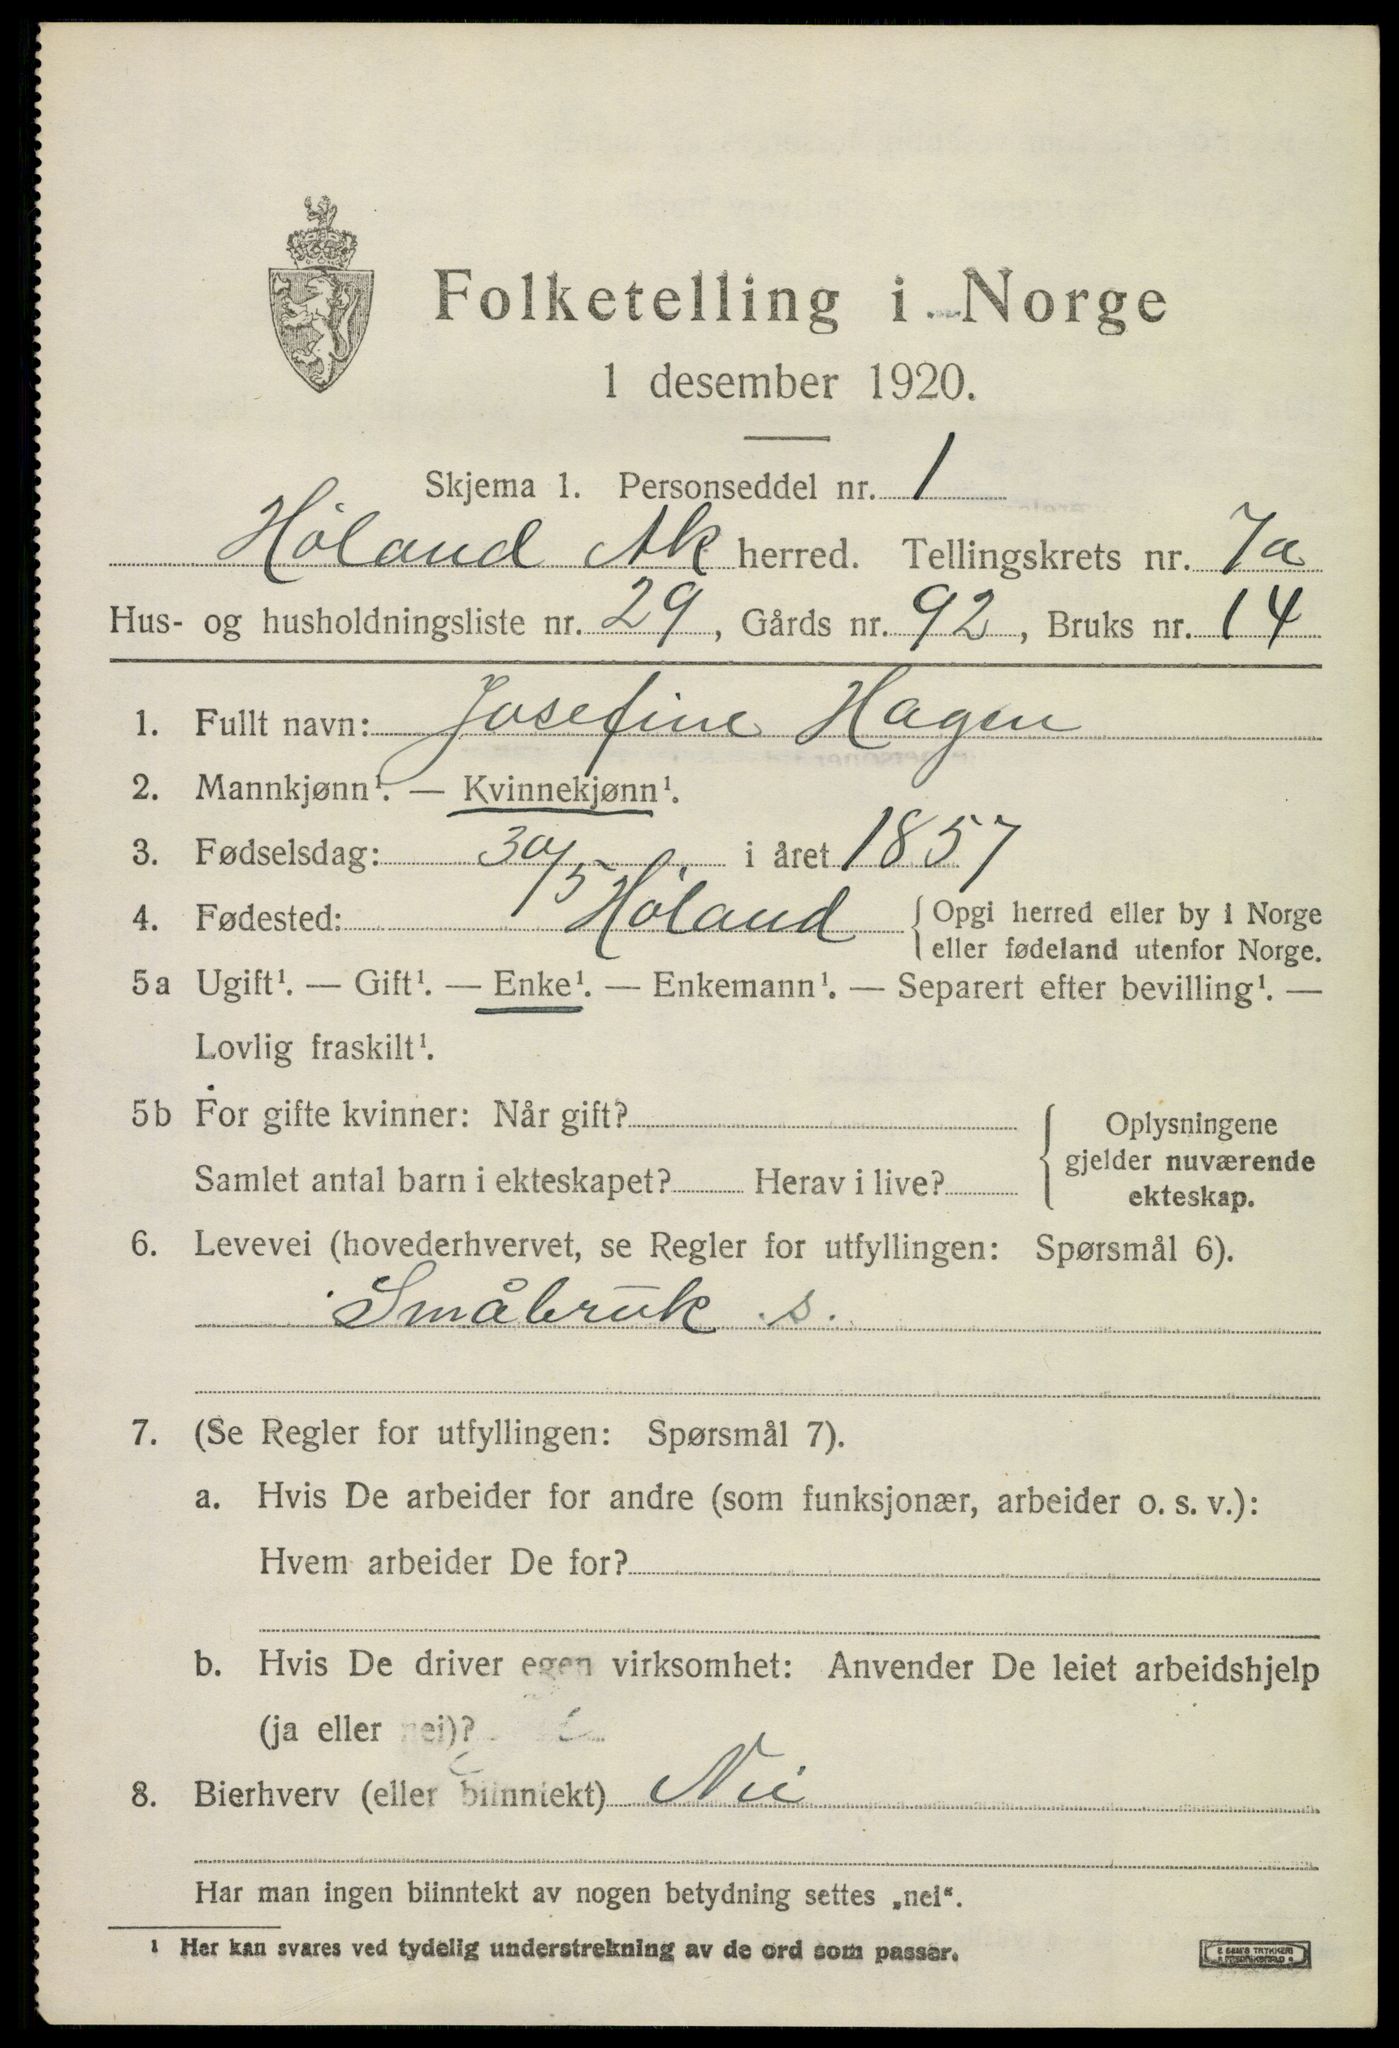 Folketelling i Norge
1 desember 1920.
Skjema 1. Personseddel nr. 1
Høland Ak herred. Tellingskrets nr. 7a
Hus- og husholdningsliste nr. 29, Gårds nr. 92, Bruks nr. 14
1. Fullt navn: Josefine Hagen
2. Mannkjønn¹. — Kvinnekjønn¹.
3. Fødselsdag: 30/5 i året 1857
4. Fødested: Høland { Opgi herred eller by i Norge
eller fødeland utenfor Norge.
5a Ugift¹. — Gift¹. — Enke¹. — Enkemann¹. — Separert efter bevilling¹. —
Lovlig fraskilt¹.
5b For gifte kvinner: Når gift?
Samlet antal barn i ekteskapet? Herav i live?
{ Oplysningene
gjelder nuværende
ekteskap.
6. Levevei (hovederhvervet, se Regler for utfyllingen: Spørsmål 6).
Småbruk s.
7. (Se Regler for utfyllingen: Spørsmål 7).
a. Hvis De arbeider for andre (som funksjonær, arbeider o. s. v.):
Hvem arbeider De for?
b. Hvis De driver egen virksomhet: Anvender De leiet arbeidshjelp
(ja eller nei)?
8. Bierhverv (eller biinntekt) Nei
Har man ingen biinntekt av nogen betydning settes „nei“.
¹ Her kan svares ved tydelig understrekning av de ord som passer.